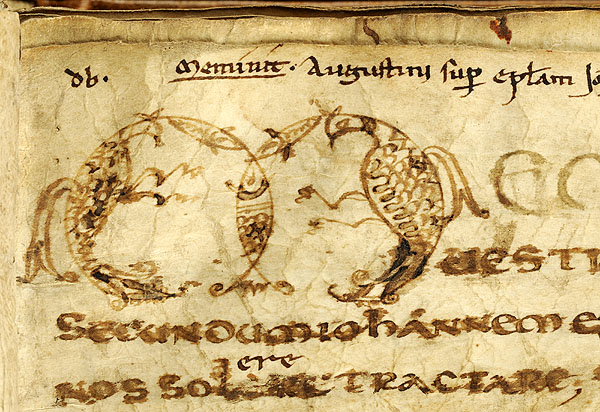 db. Meminit. Augustini sup epłam Jo
M EO
UESTR
SECUNDUM IOHANNEM E
ere
NOS SOL TRACTARE,